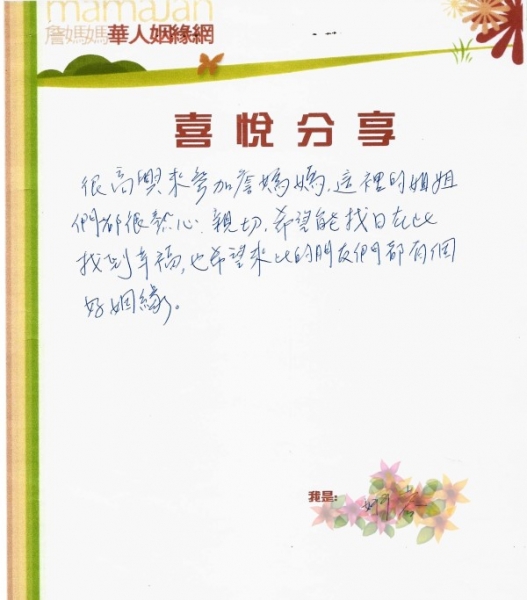 mamaJan
詹媽媽華人姻緣網
喜悅分享
很高興來參加詹媽媽,這裡的姐姐
們都很熱心、親切,希望能找日在此
找到幸福,也希望來此的朋友們都有個
好姻緣。
我是: